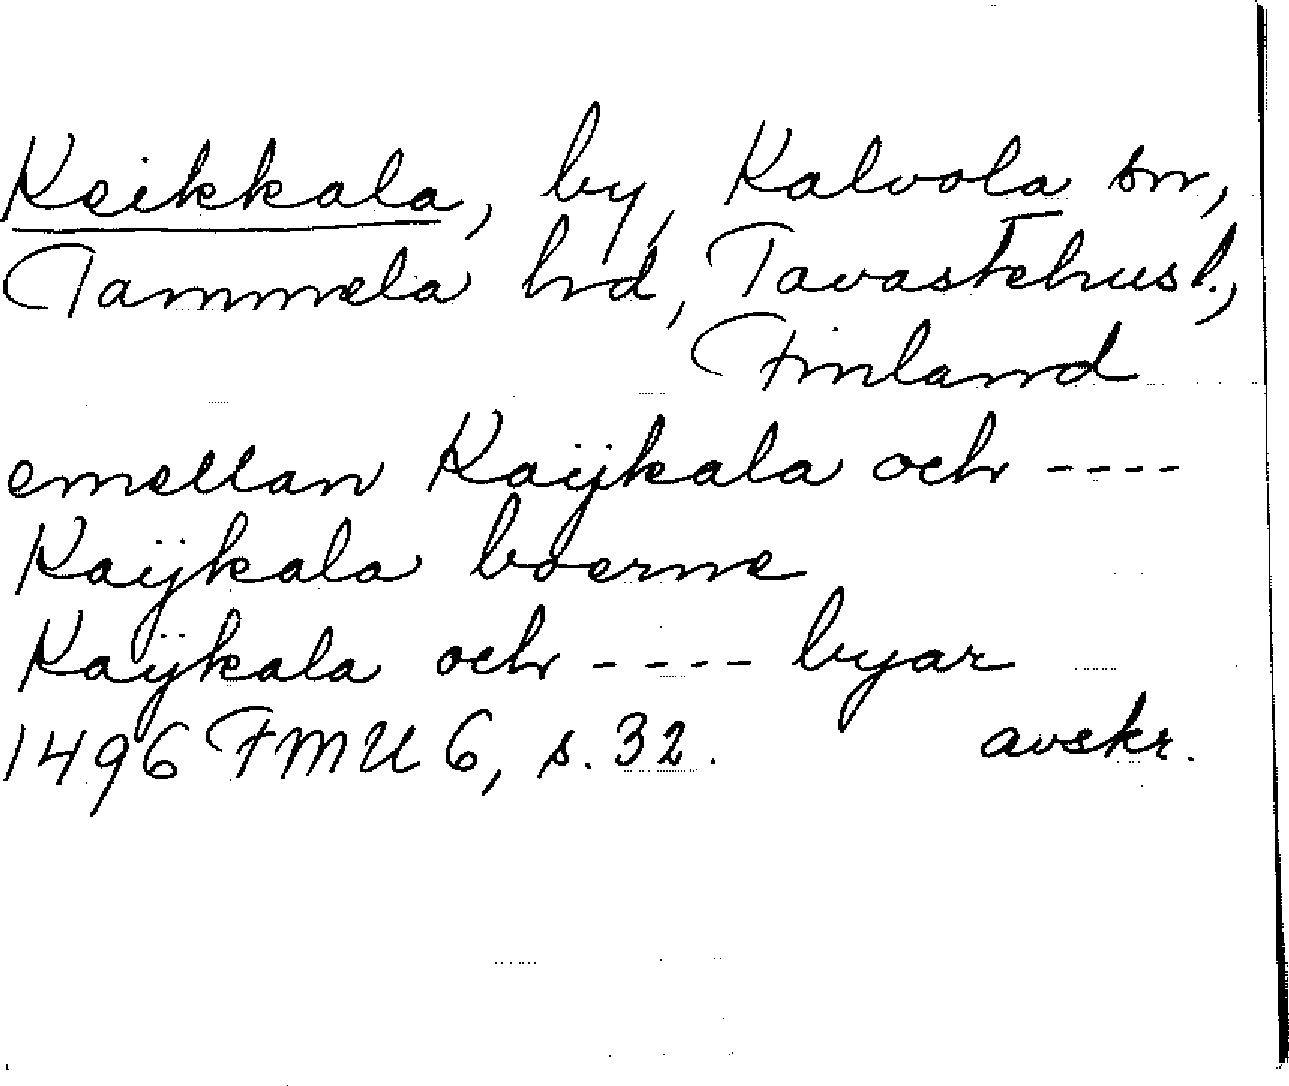 Keikkala, by, Kalvola sn,
Tammela hd, Tavastehus l.,
Finland
emellan Kaijkala och ----
Kaijkala boerne
Kaijkala och ---- byar
1496 FMU 6, s. 32. avskr.